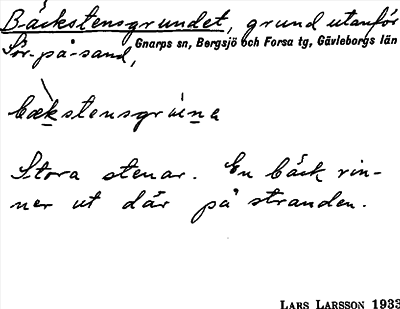 Bäckstensgrundet, grund utanför
Sör-på-sand, Gnarps sn, Bergsjö och Forsa tg, Gävleborgs län
bækstensgruna
Stora stenar. En bäck rin-
ner ut där på stranden.
LARS LARSSON 1933